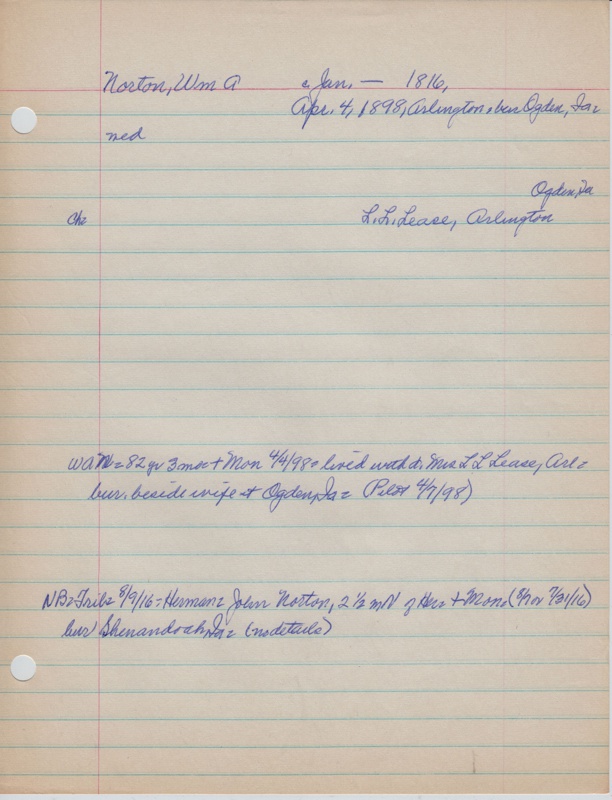 Norton, Wm A c Jan. — 1816,
Apr. 4, 1898, Arlington, bur Ogden, Ia=
med
Ogden, Ia
Ch=
L. L. Lease, Arlington
WAN = 82 yr 3 mos + Mon 4/4/98 = lived with d. Mrs L L Lease, Arl =
bur. beside wife at Ogden, Ia = Pilot 4/7/98)
NB = Trib = 8/9/16 = Herman = John Norton, 2 1/2 mi N of Her = + Mon. (8/7 or 7/31/16)
bur Shenandoah, Ia = (no details)